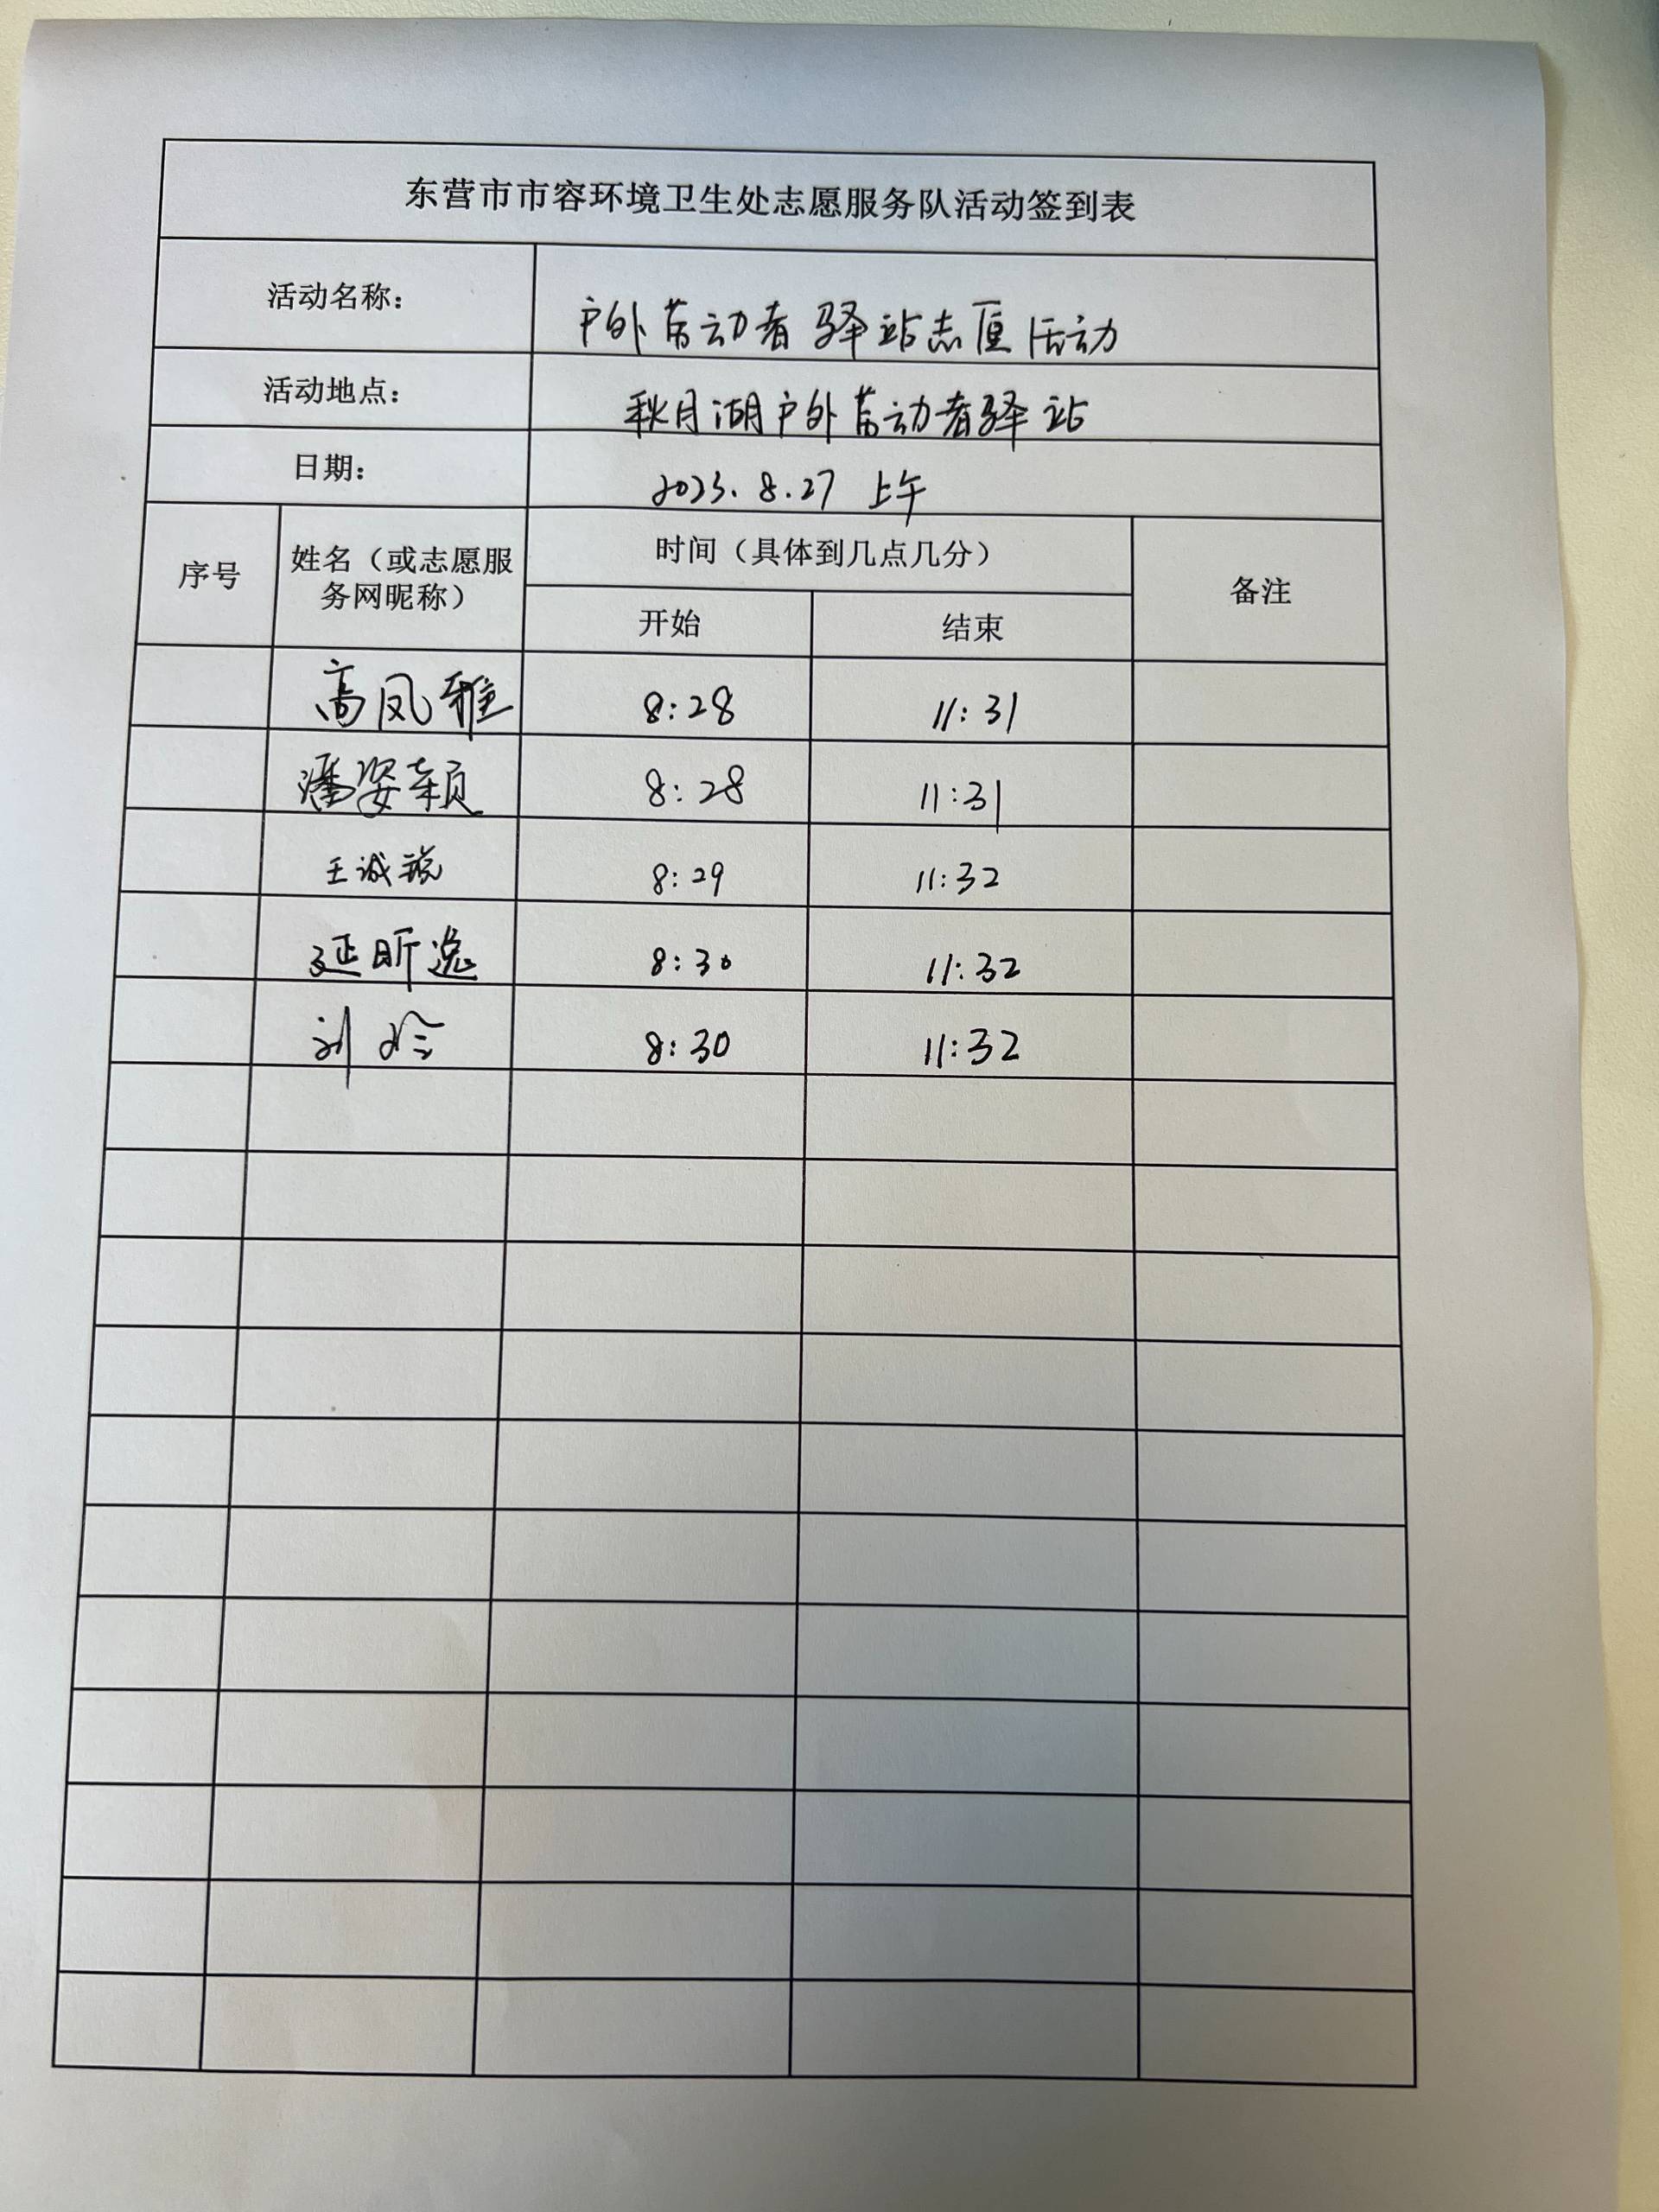 东营市市容环境卫生处志愿服务队活动签到表
活动名称： 户外劳动者驿站志愿活动
活动地点： 秋月湖户外劳动者驿站
日期： 2023.8.27 上午
序号 姓名（或志愿服务网昵称） 时间（具体到几点几分） 备注
开始 结束
高凤雅 8:28 11:31
潘姿颖 8:28 11:31
王诚锐 8:29 11:32
延昕逸 8:30 11:32
刘 8:30 11:32